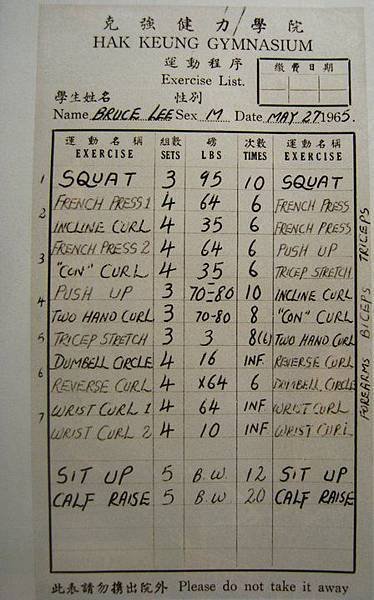 克強健力學院
HAK KEUNG GYMNASIUM
運動程序
Exercise List.
繳費日期
學生姓名 性別
Name BRUCE LEE Sex M Date MAY 27 1965.
運動名稱 組數 磅 次數 運動名稱
EXERCISE SETS LBS TIMES EXERCISE
1 SQUAT 3 95 10 SQUAT
2 FRENCH PRESS 1 4 64 6 FRENCH PRESS
INCLINE CURL 4 35 6 FRENCH PRESS
3 FRENCH PRESS 2 4 64 6 PUSH UP
"CON" CURL 4 35 6 TRICEP STRETCH
4 PUSH UP 3 70-80 10 INCLINE CURL
TWO HAND CURL 3 70-80 8 "CON" CURL
5 TRICEP STRETCH 3 3 8(6) TWO HAND CURL
6 DUMBELL CIRCLE 4 16 INF. REVERSE CURL
REVERSE CURL 4 X64 6 DUMBELL CIRCLE
7 WRIST CURL 1 4 64 INF WRIST CURL
WRIST CURL 2 4 10 INF. WRIST CURL
SIT UP 5 B.W. 12 SIT UP
CALF RAISE 5 B.W 20 CALF RAISE
FOREARMS BICEPS TRICEPS
此表請勿携出院外 Please do not take it away